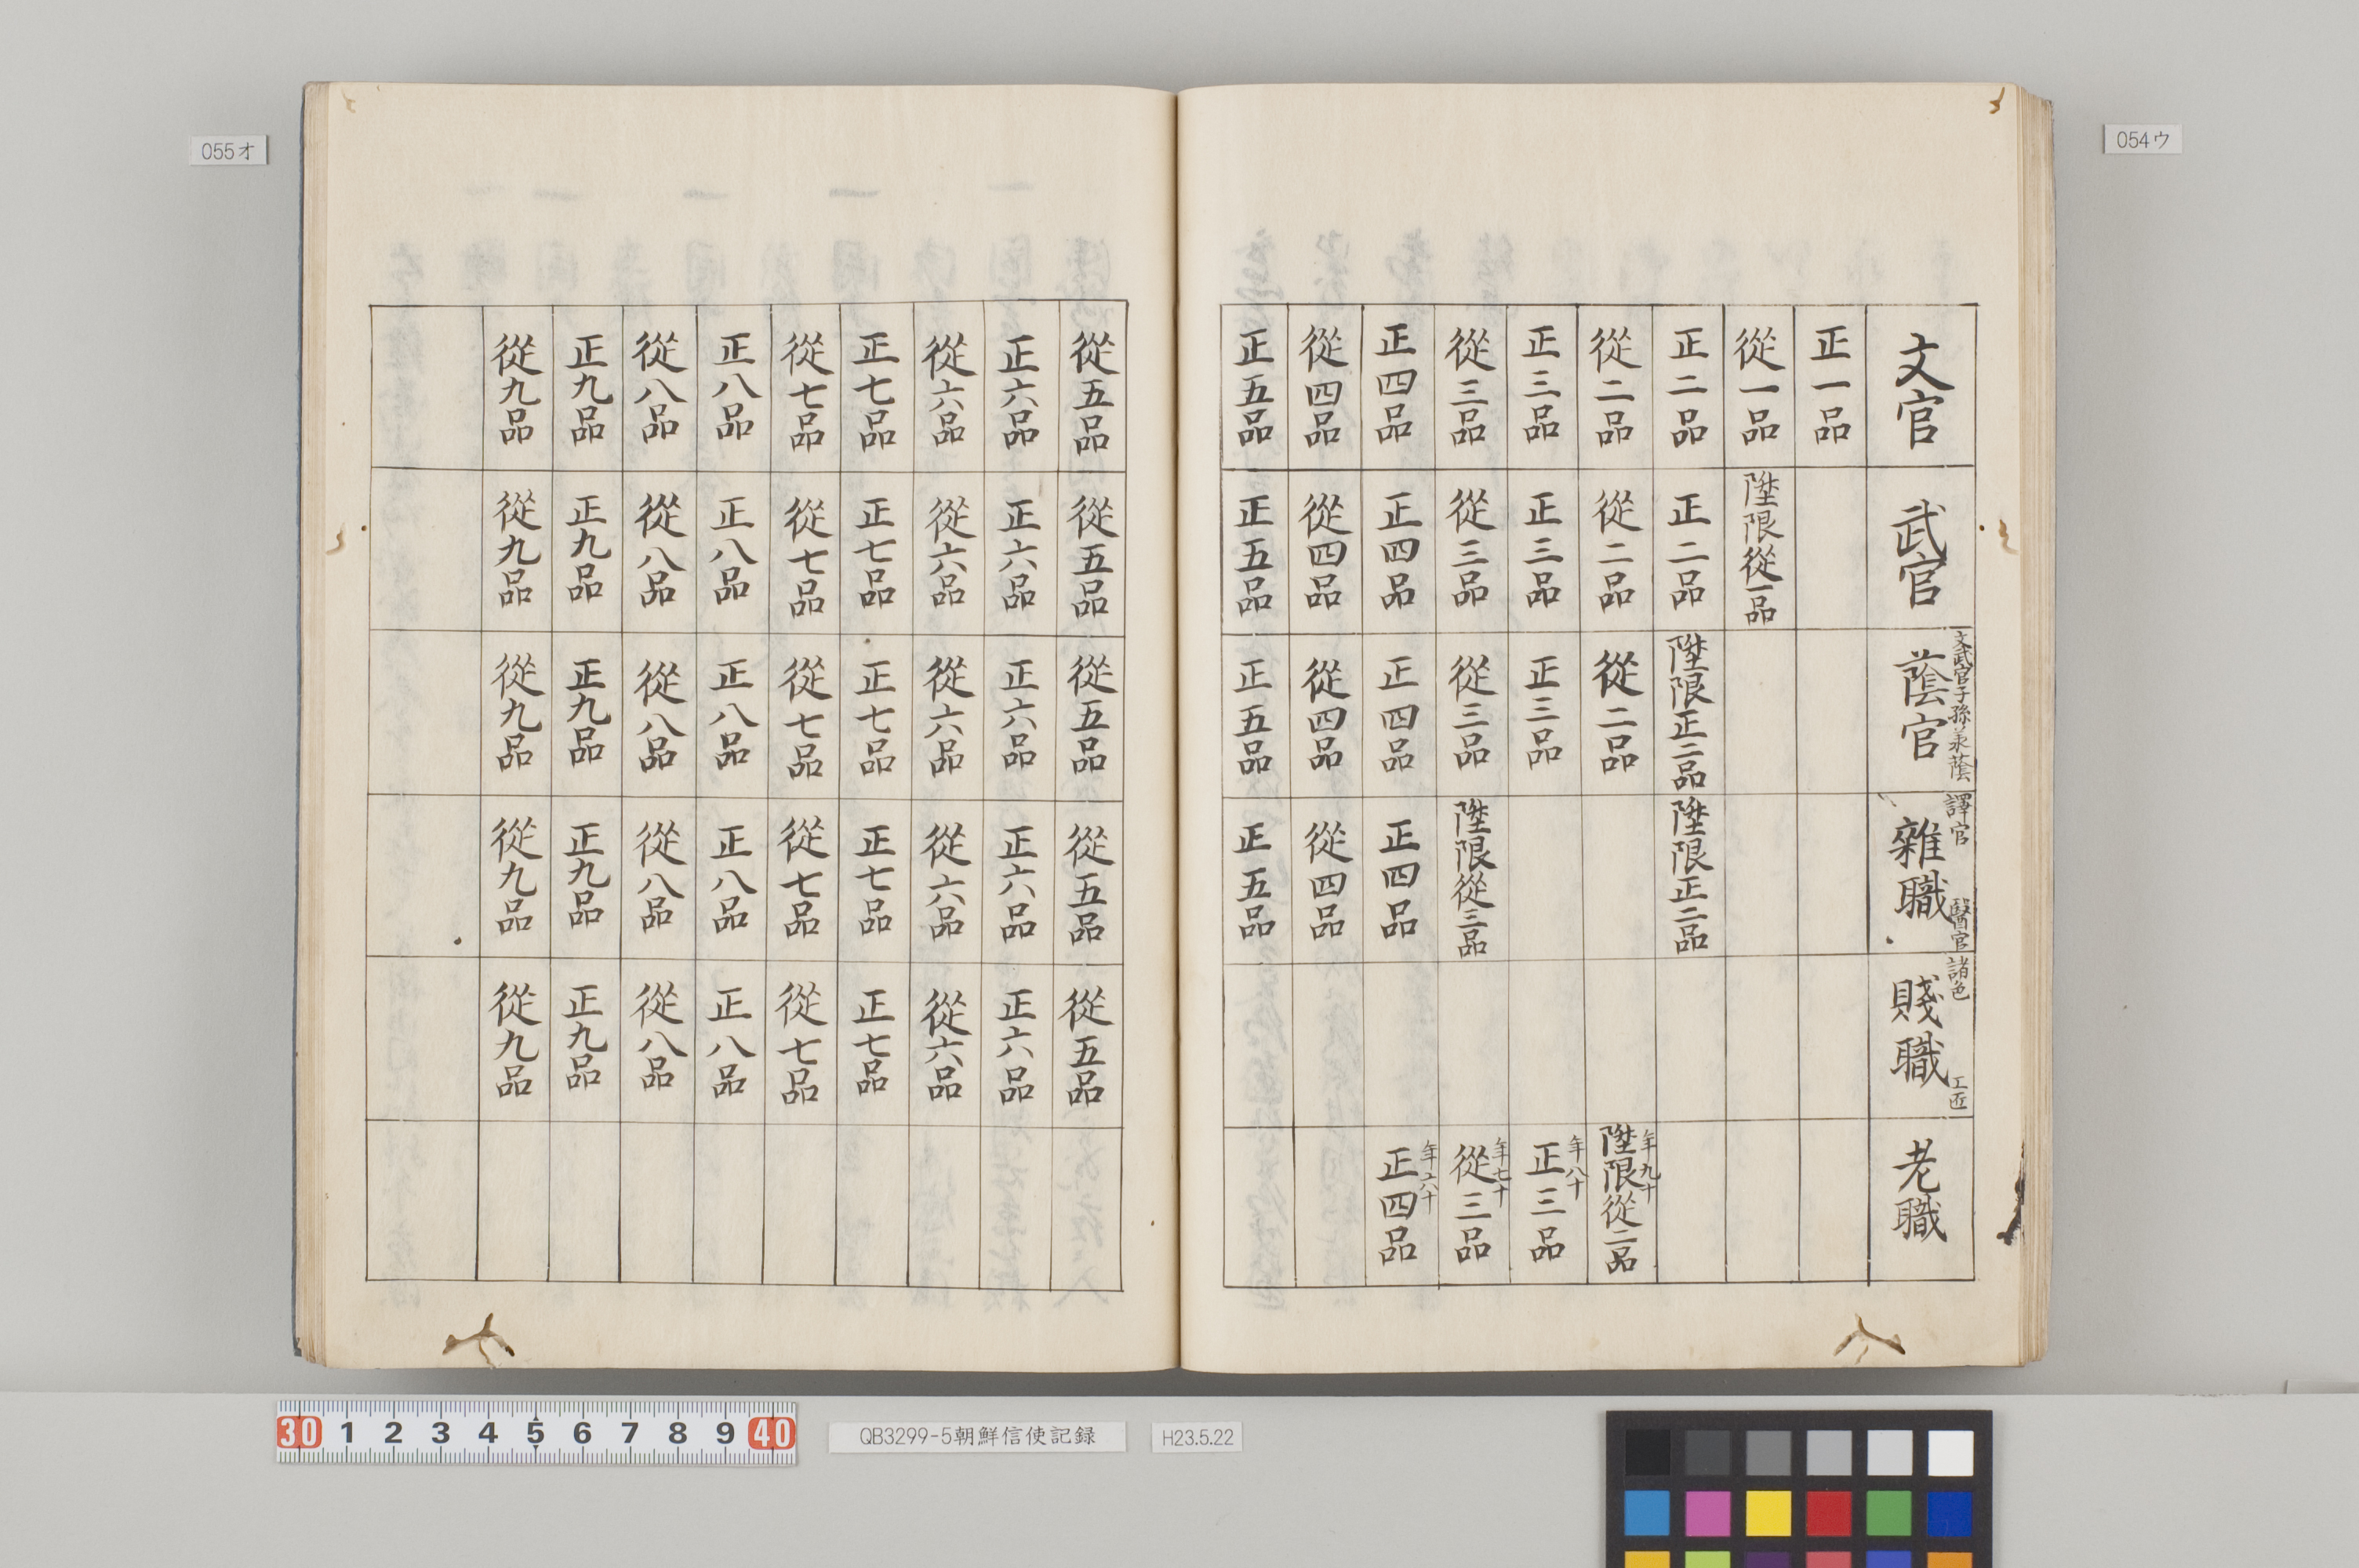 054ウ
文官
武官
文武官子孫承蔭
蔭官
譯官 醫官
雜職
諸色 工匠
賤職
老職
正一品
從一品 陞限從一品
正二品 正二品 陞限正二品 陞限正二品
從二品 從二品 從二品 年九十 陞限從二品
正三品 正三品 正三品 年八十 正三品
從三品 從三品 從三品 陞限從三品 年七十 從三品
正四品 正四品 正四品 正四品 年六十 正四品
從四品 從四品 從四品 從四品
正五品 正五品 正五品 正五品
055オ
從五品 從五品 從五品 從五品 從五品
正六品 正六品 正六品 正六品 正六品
從六品 從六品 從六品 從六品 從六品
正七品 正七品 正七品 正七品 正七品
從七品 從七品 從七品 從七品 從七品
正八品 正八品 正八品 正八品 正八品
從八品 從八品 從八品 從八品 從八品
正九品 正九品 正九品 正九品 正九品
從九品 從九品 從九品 從九品 從九品
30 1 2 3 4 5 6 7 8 9 40
QB3299-5朝鮮信使記録
H23.5.22